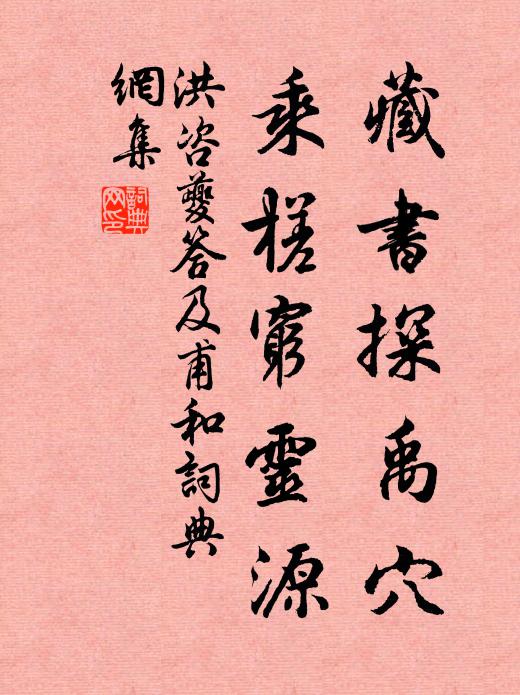 藏書探禹穴
乘槎窮靈源
洪咨夔答及甫和詞典
網集
詞典
网印